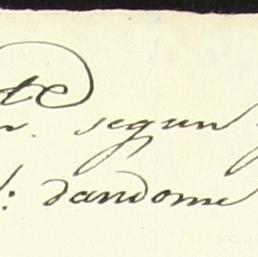 te
n. segun
: dandome